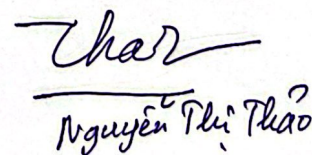 Thảo
Nguyễn Thị Thảo